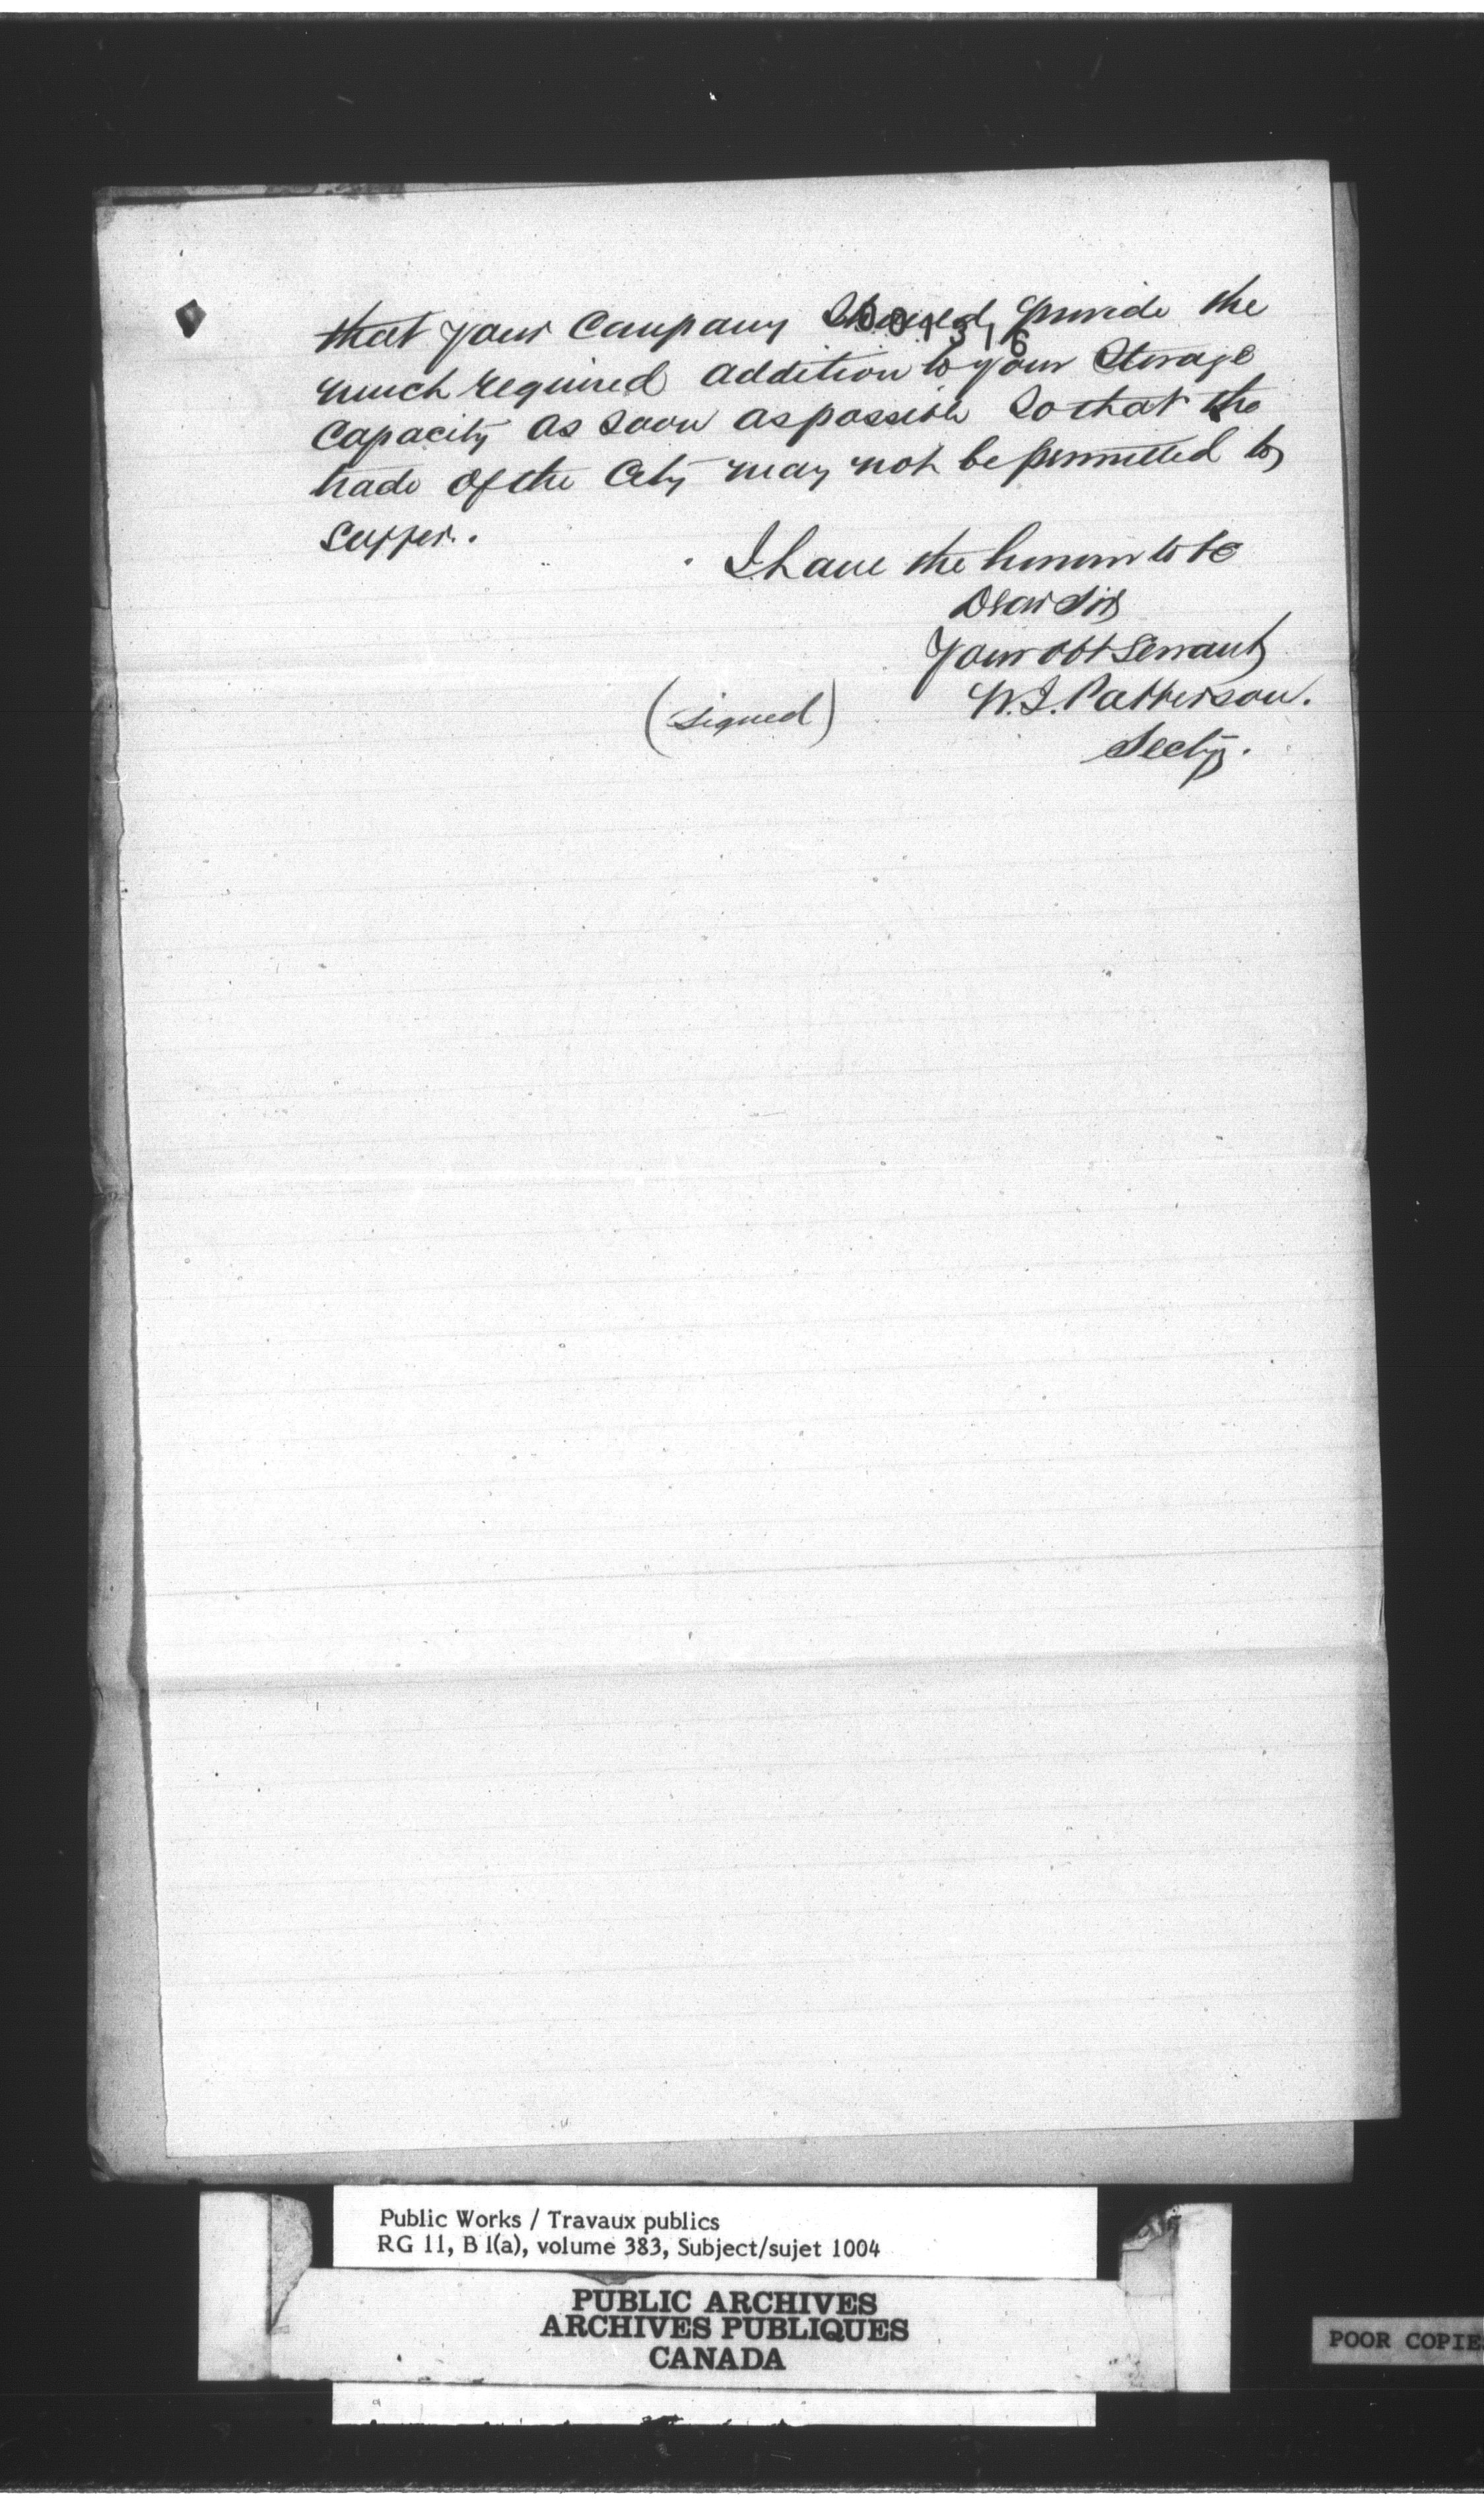 that your Company should provide the
001316
much required addition to your Storage
Capacity as soon as possible so that the
trade of the City may not be permitted to
suffer.
I have the honour to be
Dear Sir
Your obt Servant
(signed) W. J. Patterson.
Secty.
Public Works / Travaux publics
RG 11, B 1(a), volume 383, Subject/sujet 1004
PUBLIC ARCHIVES
ARCHIVES PUBLIQUES
CANADA
POOR COPIE